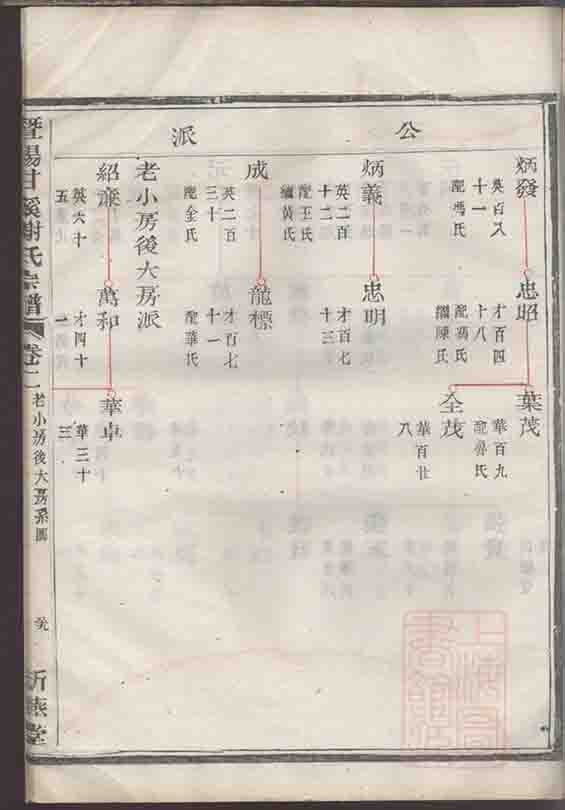 公
派
炳發
英百八
十一
配馮氏
忠昭
才百四
十八
配馮氏
繼陳氏
葉茂
華百九
配魯氏
全茂
華百廿
八
炳義
英二百
十二
配王氏
繼黃氏
忠明
才百七
十三
成
英二百
三十
配金氏
龍標
才百七
十一
配華氏
老小房後大房派
紹
英六十
五
萬和
才四十
一
華卓
華三十
三
暨陽甘溪謝氏宗譜
卷二
老小房後大房系圖